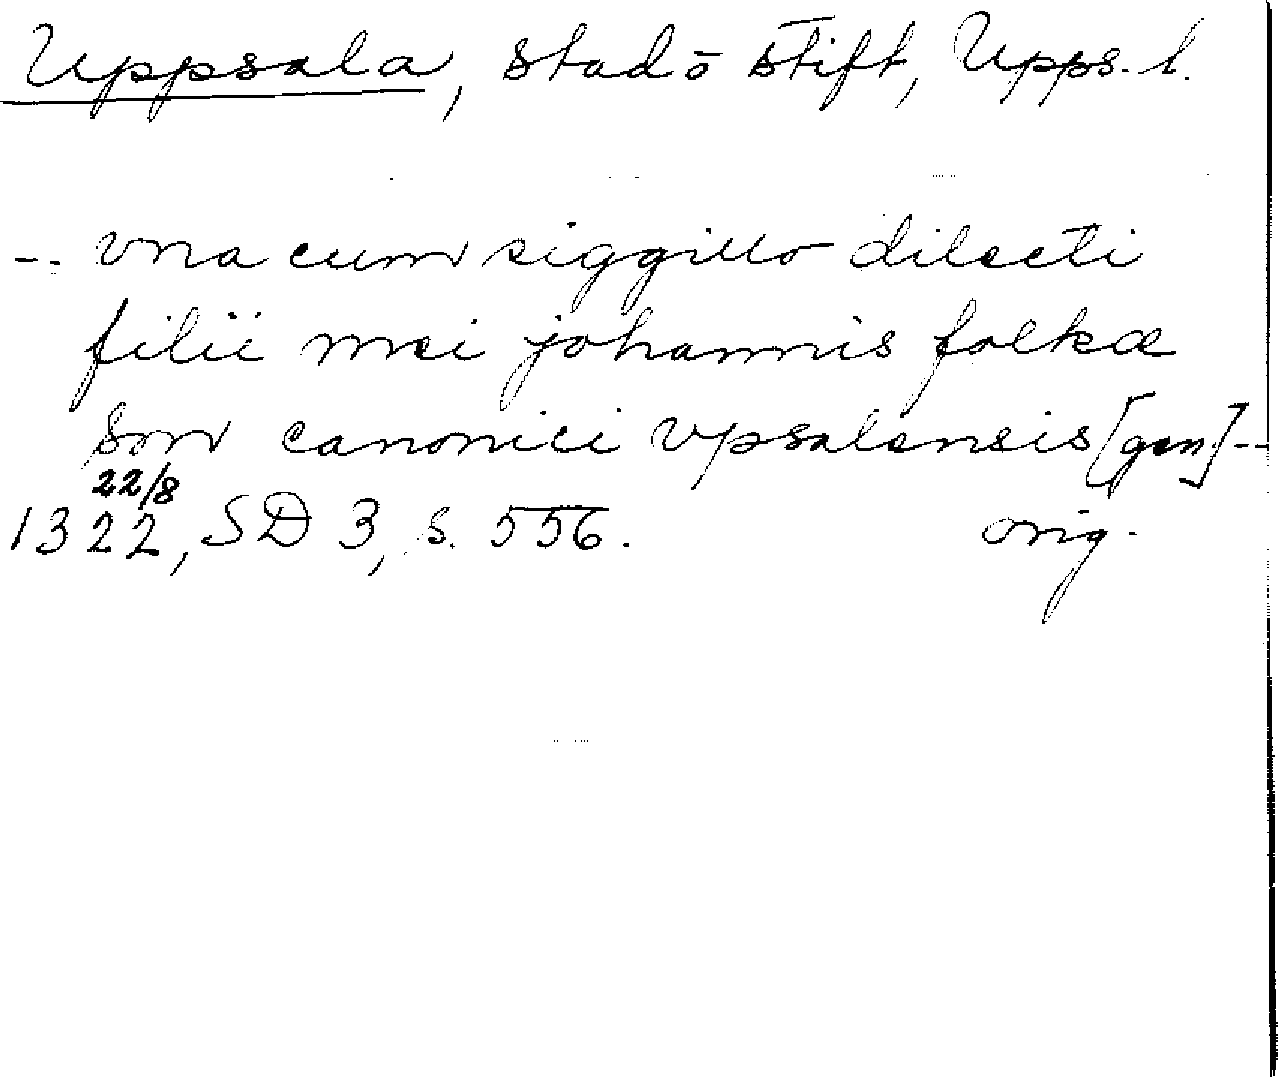 Uppsala, stad o stift, Upps. l.
-- vna cum siggillo dilecti
filii mei johannis folkæ
son canonici vpsalensis [gen] --
22/8
1322, SD 3, s. 556. orig.